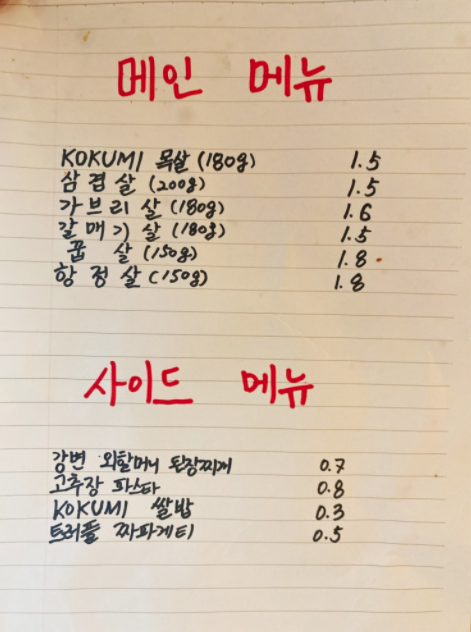 메인 메뉴
KOKUMI 목살 (180g) 1.5
삼겹살 (200g) 1.5
가브리살 (180g) 1.6
갈매기살 (180g) 1.5
꼽살 (150g) 1.8
항정살 (150g) 1.8
사이드 메뉴
강변 외할머니 된장찌개 0.7
고추장 파스타 0.8
KOKUMI 쌀밥 0.3
트러플 짜파게티 0.5